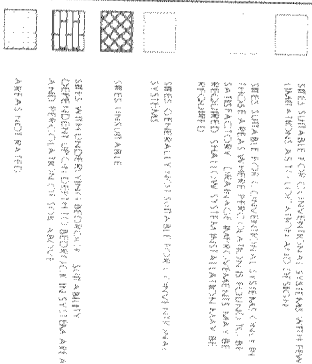 SITES SUITABLE FOR CONVENTIONAL SYSTEMS WITH FEW
LIMITATIONS AS TO LOCATION AND DESIGN
SITES SUITABLE FOR CONVENTIONAL SYSTEMS ONLY IN
THOSE AREAS WHERE PERCOLATION IS FOUND TO BE
SATISFACTORY. DRAINAGE IMPROVEMENTS MAY BE
REQUIRED. SHALLOW SYSTEM INSTALLATION MAY BE
REQUIRED
SITES GENERALLY NOT SUITABLE FOR CONVENTIONAL
SYSTEMS
SITES UNSUITABLE
SITES WITH UNDERLYING BEDROCK. SUITABILITY
DEPENDENT UPON DEPTH TO BEDROCK IN SYSTEM AREA
AND PERCOLATION OF SOIL ABOVE
AREAS NOT RATED